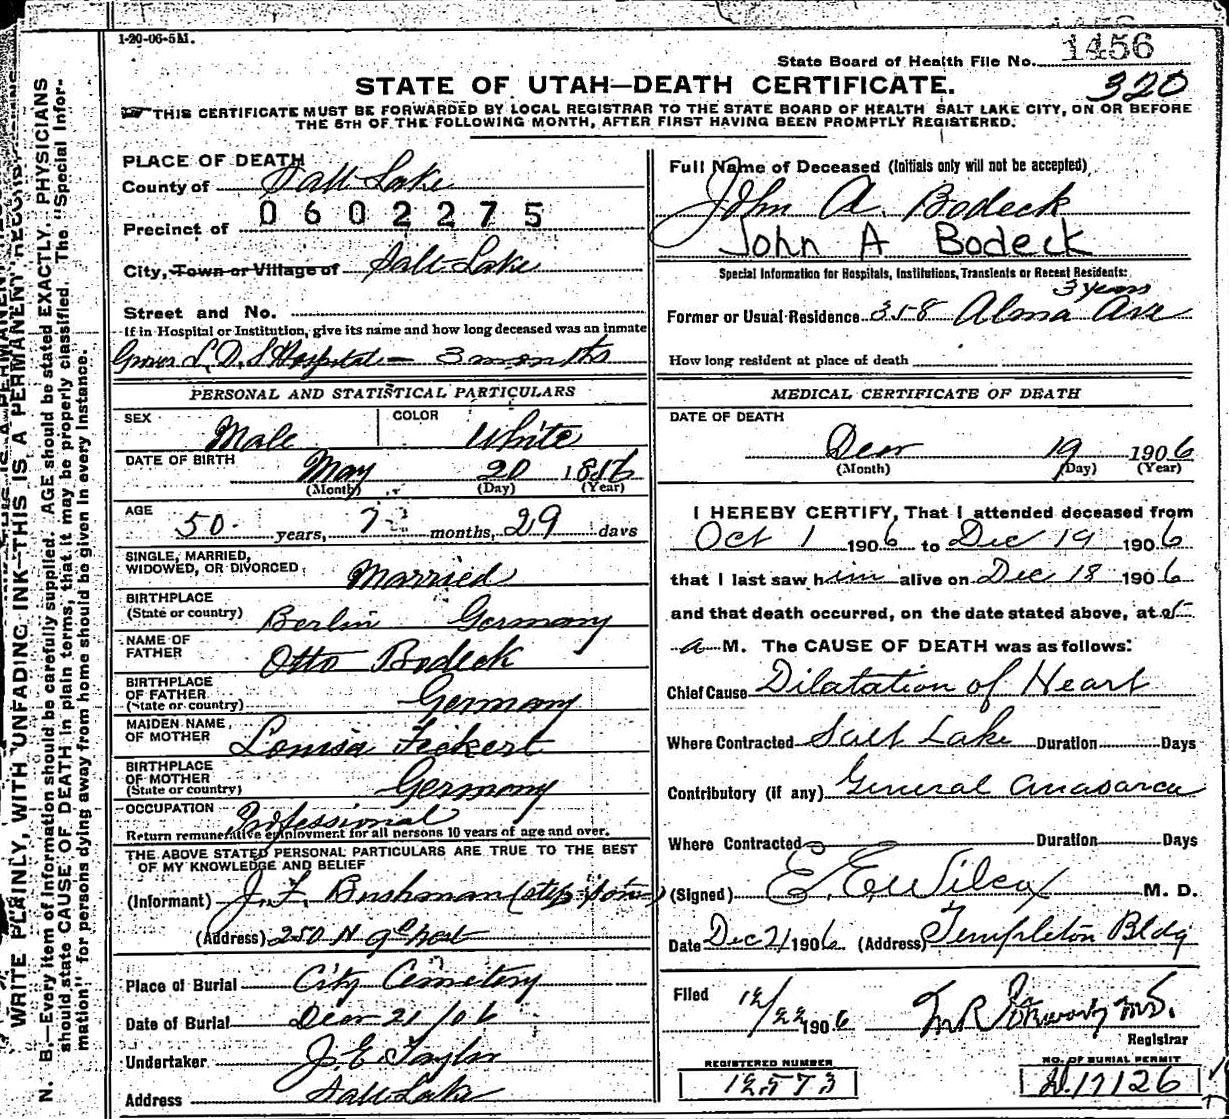 1-20-06-5M.
1456
State Board of Health File No.
320
STATE OF UTAH—DEATH CERTIFICATE.
THIS CERTIFICATE MUST BE FORWARDED BY LOCAL REGISTRAR TO THE STATE BOARD OF HEALTH SALT LAKE CITY, ON OR BEFORE
THE 5TH OF THE FOLLOWING MONTH, AFTER FIRST HAVING BEEN PROMPTLY REGISTERED.
PLACE OF DEATH
County of Salt Lake
0602275
Precinct of
City, Town or Village of Salt Lake
Street and No.
If in Hospital or Institution, give its name and how long deceased was an inmate
L. D. S Hospital — 3 months
Full Name of Deceased (Initials only will not be accepted)
John A. Bodeck
John A Bodeck
Special Information for Hospitals, Institutions, Transients or Recent Residents:
3 years
Former or Usual Residence 358 Alma Ave
How long resident at place of death
PERSONAL AND STATISTICAL PARTICULARS
SEX Male COLOR White
DATE OF BIRTH May 20 1856
(Month) (Day) (Year)
AGE 50 years, 7 months, 29 days
SINGLE, MARRIED,
WIDOWED, OR DIVORCED Married
BIRTHPLACE
(State or country) Berlin Germany
NAME OF
FATHER Otto Bodeck
BIRTHPLACE
OF FATHER
(State or country) Germany
MAIDEN NAME
OF MOTHER Louisa Fickert
BIRTHPLACE
OF MOTHER
(State or country) Germany
OCCUPATION Professional
Return remunerative employment for all persons 10 years of age and over.
THE ABOVE STATED PERSONAL PARTICULARS ARE TRUE TO THE BEST
OF MY KNOWLEDGE AND BELIEF
(Informant) J. F. Bushman (step son)
(Address) 250 N
Place of Burial City Cemetery
Date of Burial Decr 21/06
Undertaker J. E Taylor
Address Salt Lake
MEDICAL CERTIFICATE OF DEATH
DATE OF DEATH
Decr 19 1906
(Month) (Day) (Year)
I HEREBY CERTIFY, That I attended deceased from
Oct 1 1906 to Dec 19 1906
that I last saw him alive on Dec 18 1906
and that death occurred, on the date stated above, at 5
a M. The CAUSE OF DEATH was as follows:
Chief Cause Dilatation of Heart
Where Contracted Salt Lake Duration Days
Contributory (if any) General Anasarca
Where Contracted Duration Days
(Signed) E. E. Wilcox M. D.
Date Dec 21 1906 (Address) Templeton Bldg
Filed 12/22 1906
Registrar
REGISTERED NUMBER
12573
NO. OF BURIAL PERMIT
17126
WRITE PLAINLY, WITH UNFADING INK—THIS IS A PERMANENT RECORD
N. B.—Every item of information should be carefully supplied. AGE should be stated EXACTLY. PHYSICIANS
should state CAUSE OF DEATH in plain terms, that it may be properly classified. The "Special Infor-
mation" for persons dying away from home should be given in every instance.